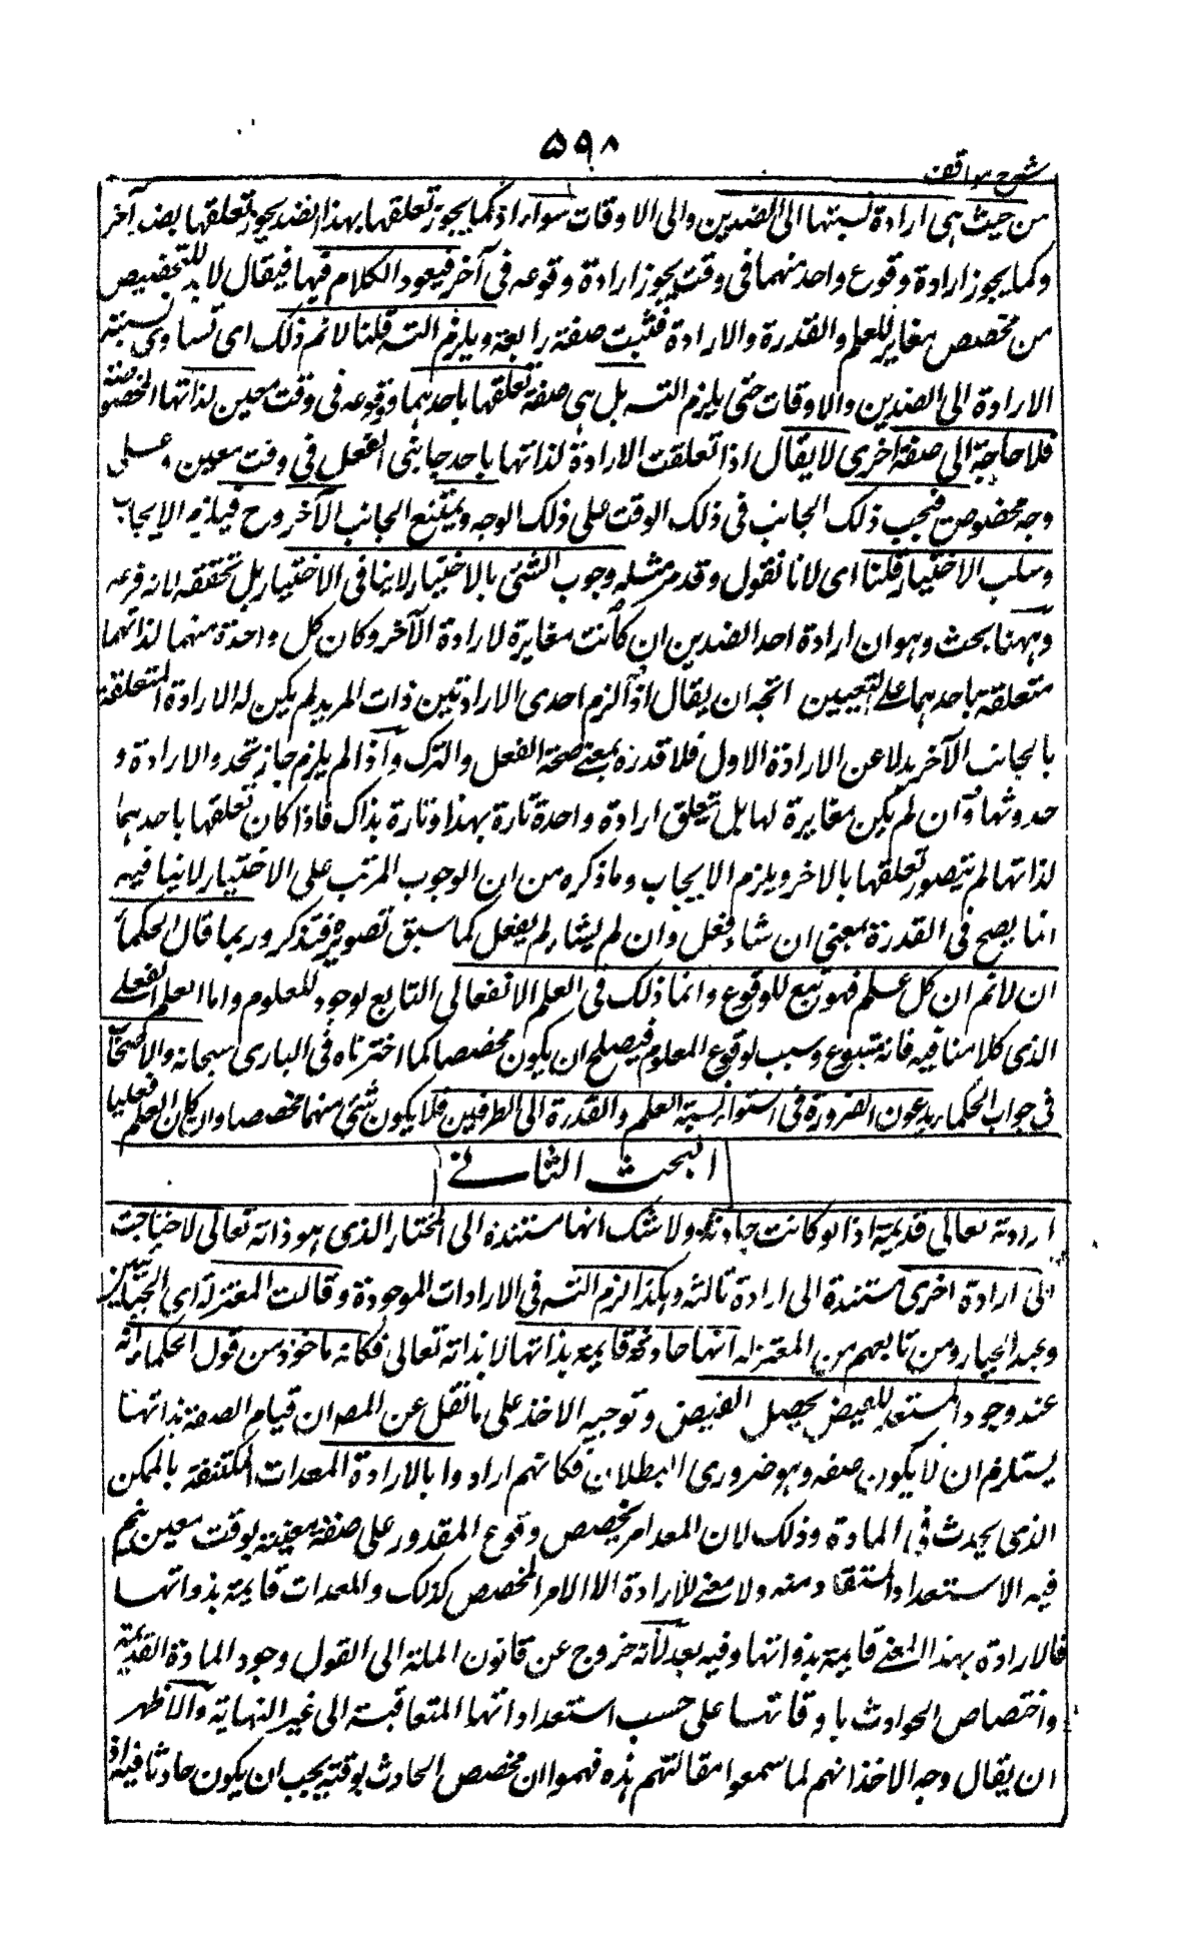 ۵۹۸
شرح مواقف
من حيث هى ارادة نسبتها الى الضدين والى الاوقات سواء اذ كما يجوز تعلقها بهذا الضد يجوز تعلقها بضد آخر
وكما يجوز ارادة وقوع واحد منهما فى وقت يجوز ارادة وقوعه فى آخر فيعود الكلام فيها فيقال لا بد للتخصيص
من مخصص مغاير للعلم والقدرة والارادة فتثبت صفة رابعة ويلزم التسـ قلنا لا نم ذلك اى تساوى نسبته
الارادة الى الضدين والاوقات حتى يلزم التسـ بل هى صفة تعلقها باحدهما وقوعه فى وقت معين لذاتها المخصوصة
فلا حاجة الى صفة اخرى لا يقال اذا تعلقت الارادة لذاتها باحد جانبى الفعل فى وقت معين وعلى
وجه مخصوص فيجب ذلك الجانب فى ذلك الوقت على ذلك الوجه ويمتنع الجانب الآخر وح فيلزم الايجاب
وسلب الاختيار قلنا اى لانا نقول وقد مر مثله وجوب الشئ بالاختيار لا ينافى الاختيار بل تحققه لانه فرعه
وههنا بحث وهو ان ارادة احد الضدين ان كانت مغايرة لارادة الآخر وكان كل واحدة منهما لذاتها
متعلقة باحدهما على التعيين اتجه ان يقال اذا لزم احدى الارادتين ذات المريد لم يكن له الارادة المتعلقة
بالجانب الآخر بدلا عن الارادة الاول فلا قدرة بمعنى صحة الفعل والترك واذا لم يلزم جاز تجدد الارادة و
حدوثها وان لم يكن مغايرة لها بل تتعلق ارادة واحدة تارة بهذا وتارة بذاك فاذا كان تعلقها باحدهما
لذاتها لم يتصور تعلقها بالاخر ويلزم الايجاب وما ذكره من ان الوجوب المرتب على الاختيار لا ينافيه
انما يصح فى القدرة بمعنى ان شاء فعل وان لم يشاء لم يفعل كما سبق تصويره فتذكر وربما قال الحكماء
ان لا نم ان كل علم فهو تبع للوقوع وانما ذلك فى العلم الانفعالى التابع لوجود للمعلوم واما العلم الفعلى
الذى كلامنا فيه فانه متبوع وسبب لوقوع المعلوم فيصلح ان يكون مخصصا كما اخترناه فى البارى سبحانه والاصحاب
فى جواب الحكماء يدعون الضرورة فى استواء نسبة العلم والقدرة الى الطرفين فلا يكون شئ منهما مخصصا وان كان العلم فعليا
البحث الثانى
ارادته تعالى قديمة اذ لو كانت حادثة ولا شك انها مستندة الى المختار الذى هو ذاته تعالى لاحتاجت
الى ارادة اخرى مستندة الى ارادة ثالثة وهكذا لزم التسـ فى الارادات الموجودة وقالت المعتزلة اى الجبائيين
وعبد الجبار ومن تابعهم من المعتزلة انها حادثة قائمة بذاتها لا بذاته تعالى فكانه ماخوذ من قول الحكماء انه
عند وجود المستعد للفيض يحصل الفيض وتوجيه الاخذ على ما نقل عن المصـ ان قيام الصفة بذاتها
يستلزم ان لا يكون صفة وهو ضرورى البطلان فكانهم ارادوا بالارادة المعدات المكتنفة بالممكن
الذى يحدث فى المادة وذلك لان المعد امر يخصص وقوع المقدور على صفة معينة بوقت معين يتم
فيه الاستعداد المستفاد منه ولا معنى للارادة الا الامر المخصص كذلك والمعدات قائمة بذواتها
فالارادة بهذا المعنى قائمة بذواتها وفيه بعد لانه خروج عن قانون الملة الى القول وجود المادة القديمة
واختصاص الحوادث باوقاتها على حسب استعداداتها المتعاقبة الى غير النهاية والاظهر
ان يقال وجه الاخذ انهم لما سمعوا مقالتهم هذه فهموا ان مخصص الحادث بوقته يجب ان يكون حادثا فيه اذ